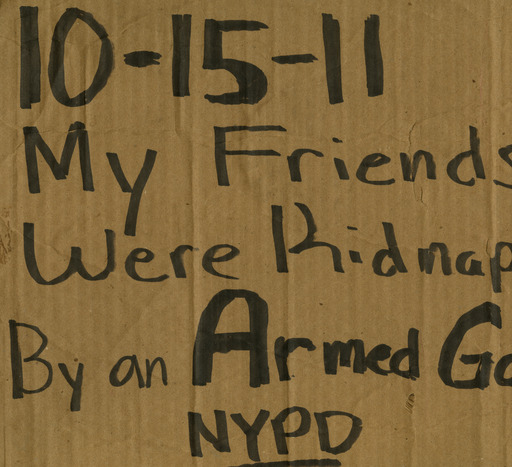 10-15-11
My Friends
Were Kidnap
By an Armed Ga
NYPD